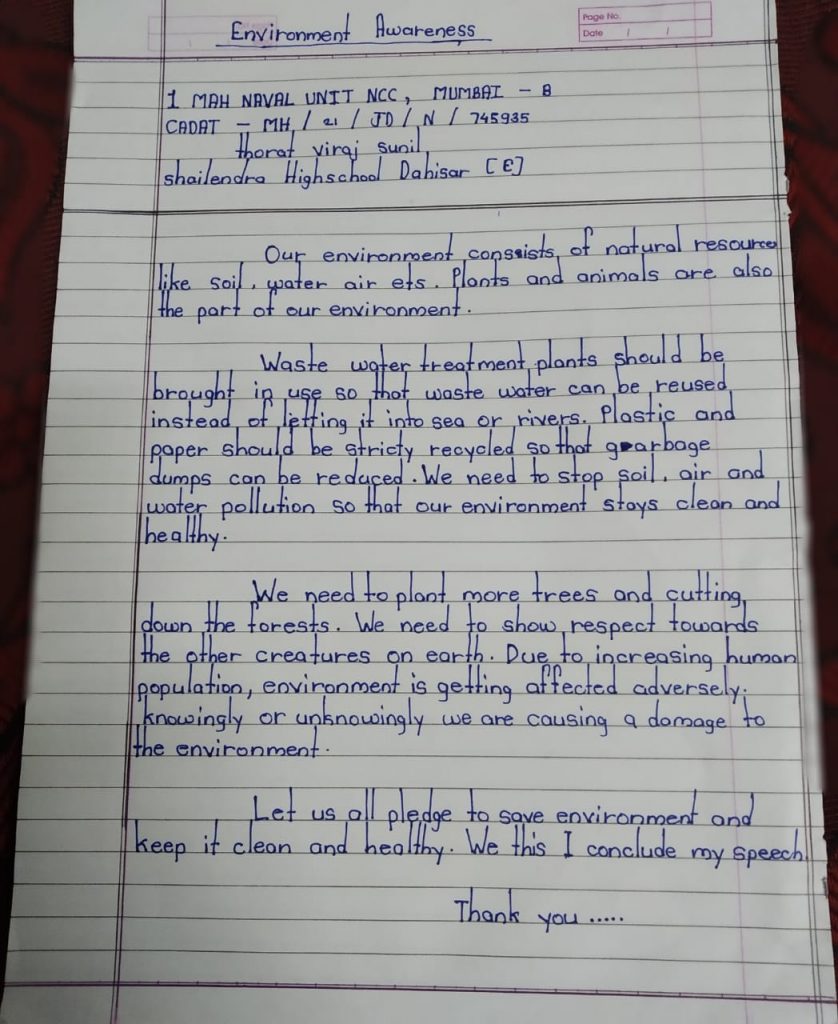 Environment Awareness
Page No.
Date / /
1 MAH NAVAL UNIT NCC, MUMBAI - 8
CADAT - MH / 21 / JD / N / 745935
thorat viraj sunil
shailendra Highschool Dahisar [E]
Our environment conssists of natural resources
like soil, water air ets. Plants and animals are also
the part of our environment.
Waste water treatment plants should be
brought in use so that waste water can be reused
instead of letting it into sea or rivers. Plastic and
paper should be stricty recycled so that garbage
dumps can be reduced. We need to stop soil, air and
water pollution so that our environment stays clean and
healthy.
We need to plant more trees and cutting
down the forests. We need to show respect towards
the other creatures on earth. Due to increasing human
population, environment is getting affected adversely.
knowingly or unknowingly we are causing a damage to
the environment.
Let us all pledge to save environment and
keep it clean and healthy. We this I conclude my speech
Thank you .....